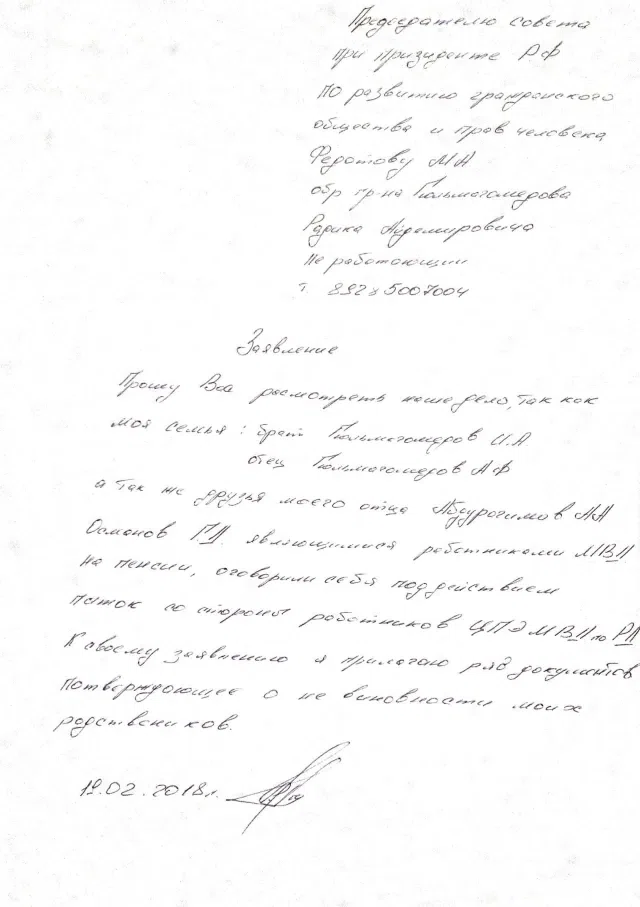 Председателю Совета
при призиденте РФ
по развитию гражданского
общества и прав человека
Федотову МА
обр гр-на Гюльмагомедова
Радика Айдемировича
Не работающии
т 892 5007004
Заявление
Прошу Вас расмотреть наше дело, так как
моя семья: брат Гюльмагомедов И.А
отец Гюльмагомедов АФ
а так же друзья моего отца Абдурагимов АА
Османов ГД. являющимися работниками МВД
на пенсии, оговорили себя под действием
пыток со стороны работников ЦПЭ МВД по РД
К своему заявлению я прилогаю ряд документов
потверждающее о не виновности моих
родствеников.
19.02.2018г.